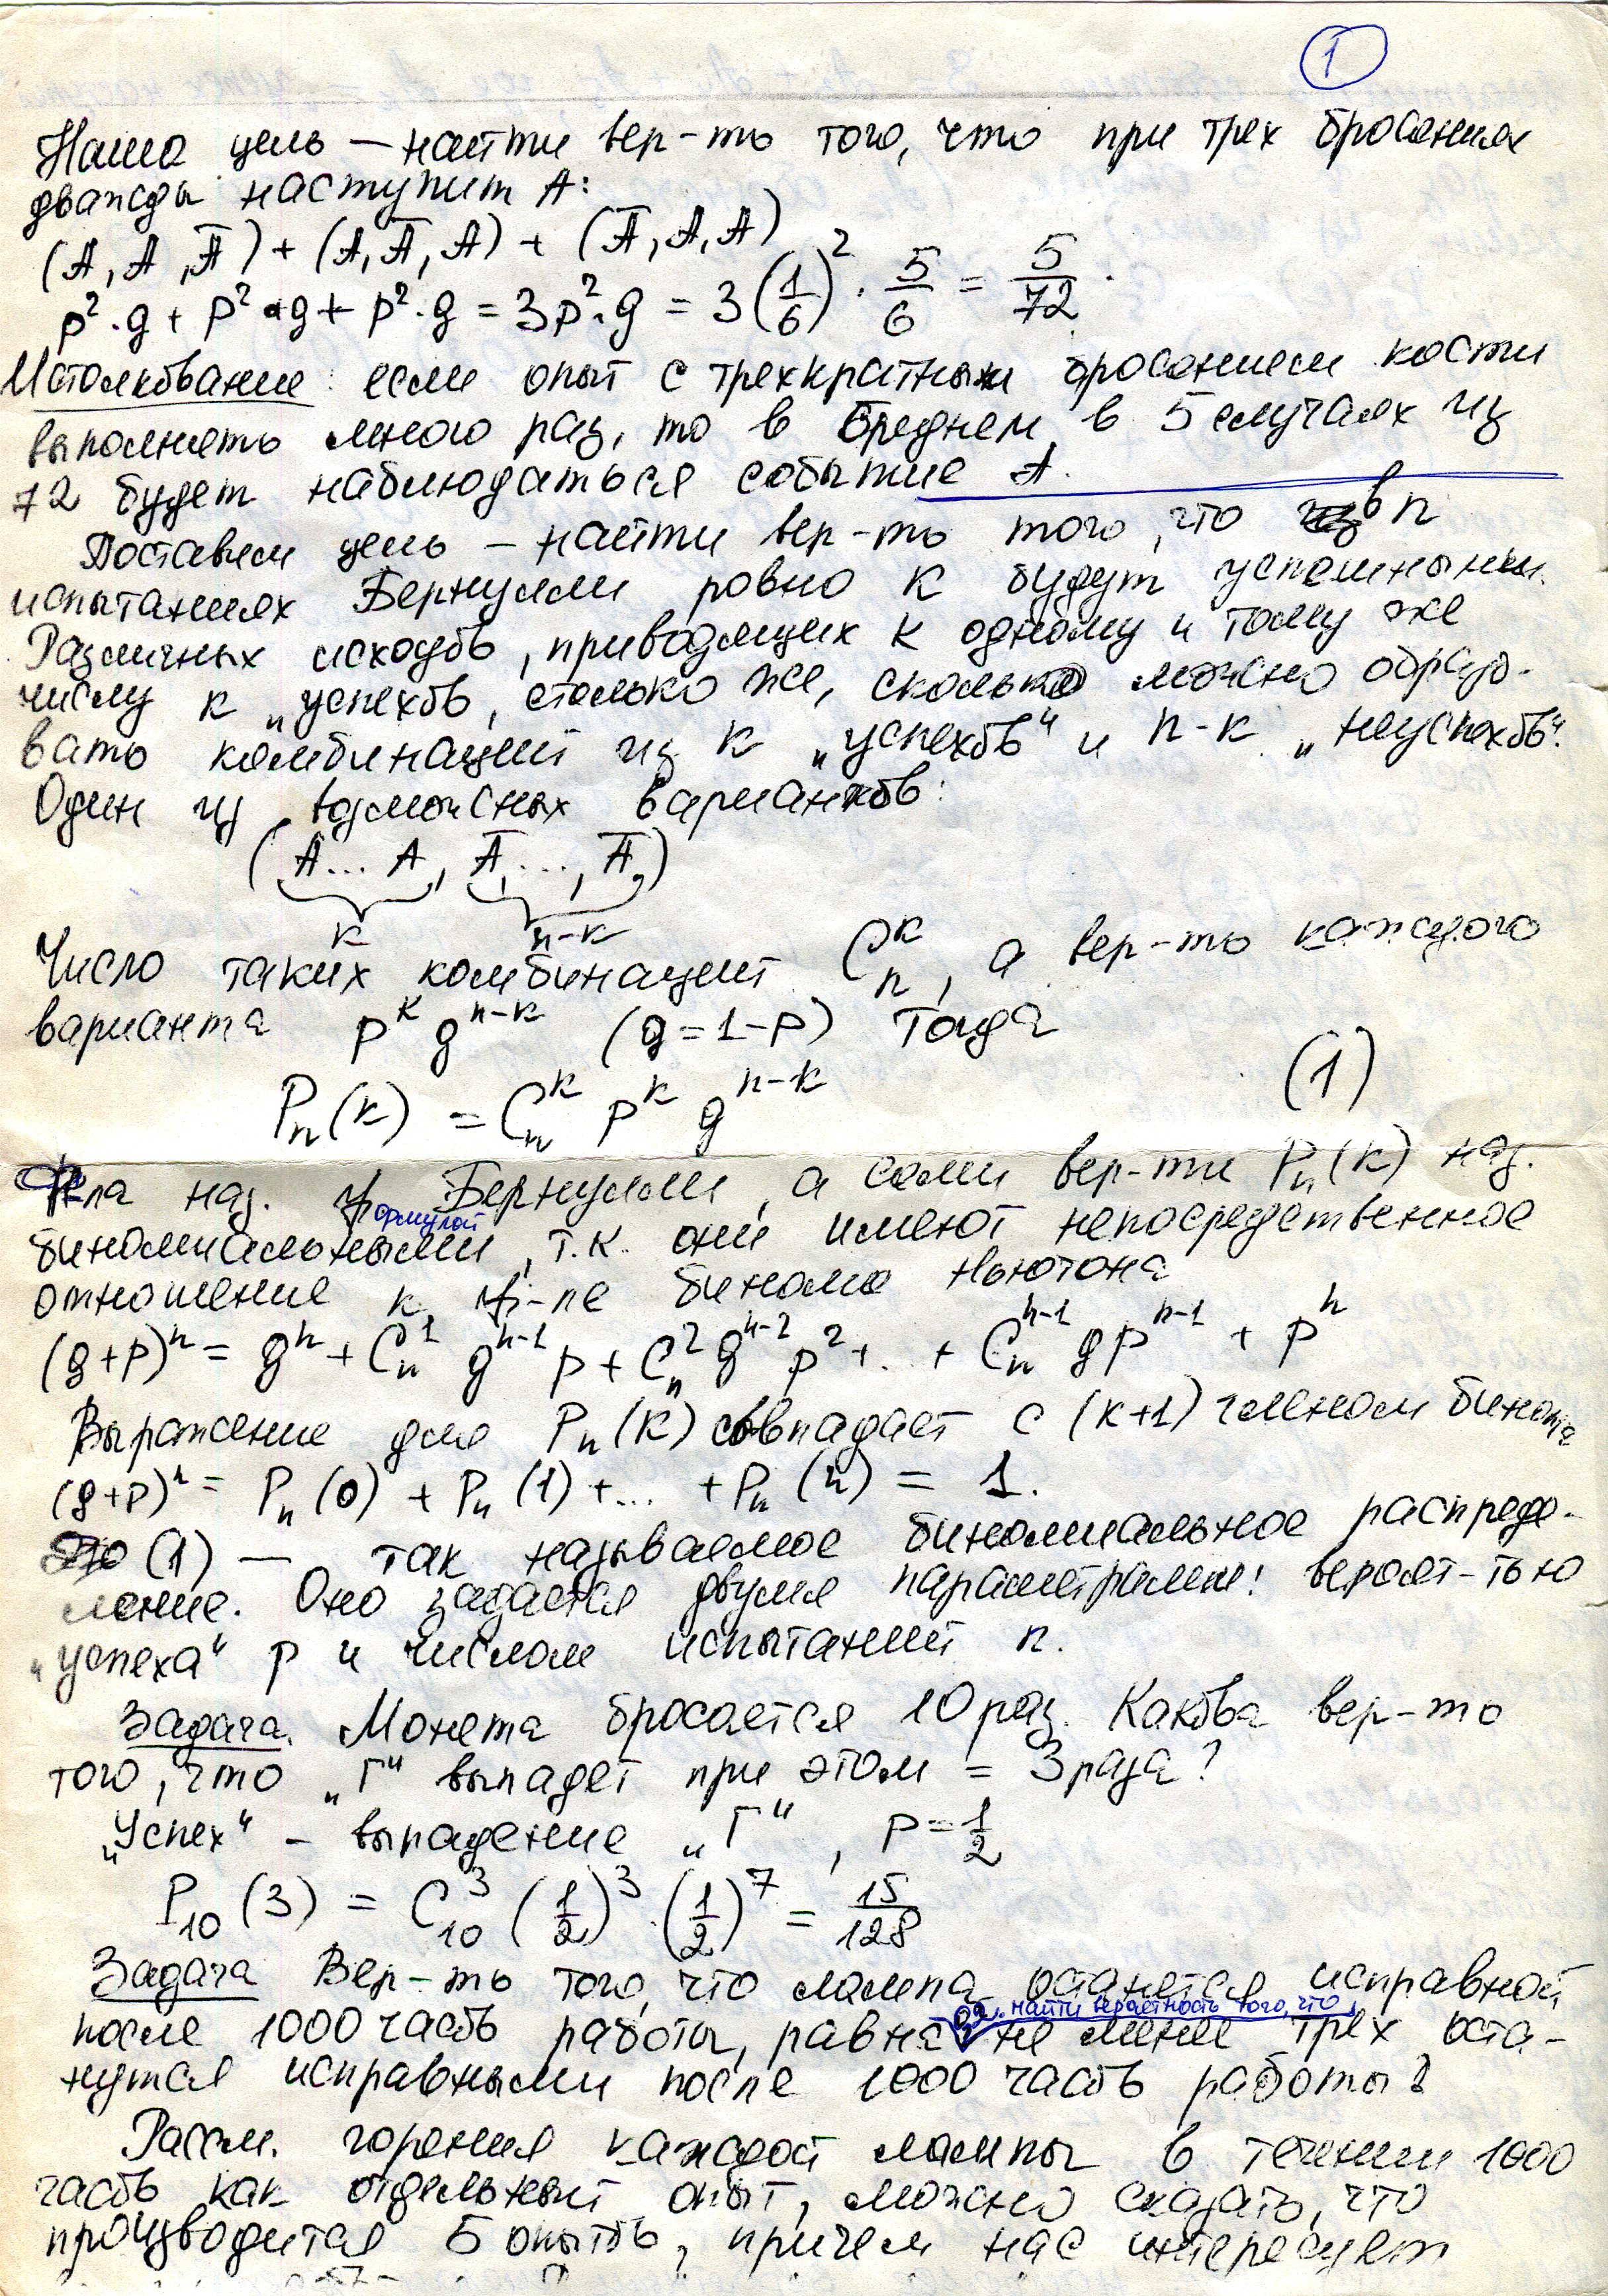 1
Наша цель — найти вер-ть того, что при трех бросаниях
дважды наступит A:
(A, A, Ā) + (A, Ā, A) + (Ā, A, A)
p²·q + p²·q + p²·q = 3p²·q = 3(1/6)²·5/6 = 5/72.
Истолкование: если опыт с трехкратным бросанием кости
выполнять много раз, то в среднем в 5 случаях из
72 будет наблюдаться событие A.
Поставим цель – найти вер-ть того, что в n
испытаниях Бернулли ровно k будут успешными.
Различных исходов, приводящих к одному и тому же
числу k „успехов, столько же, сколько можно образо-
вать комбинаций из k „успехов“ и n-k „неуспехов“.
Один из возможных вариантов:
(A... A, Ā, ..., Ā)
k n-k
Число таких комбинаций Cₙᵏ, а вер-ть каждого
варианта pᵏ qⁿ⁻ᵏ (q=1-p) Тогда
Pₙ(k) = Cₙᵏ pᵏ qⁿ⁻ᵏ (1)
Ф-ла наз. формулой Бернулли, а сами вер-ти Pₙ(k) наз.
биномиальными, т.к. они имеют непосредственное
отношение к ф-ле бинома Ньютона
(q+p)ⁿ = qⁿ + Cₙ¹ qⁿ⁻¹ p + Cₙ² qⁿ⁻² p² +.. + Cₙⁿ⁻¹ qpⁿ⁻¹ + pⁿ
Выражение для Pₙ(k) совпадает с (k+1) членом бинома
(q+p)ⁿ = Pₙ(0) + Pₙ(1) +... +Pₙ(n) = 1.
(1) — так называемое биномиальное распреде-
ление. Оно задается двумя параметрами: вероят-тью
„успеха“ p и числом испытаний n.
Задача. Монета бросается 10 раз. Какова вер-ть
того, что „Г“ выпадет при этом = 3 раза?
„Успех“ – выпадение „Г“, p=1/2
P₁₀(3) = C₁₀³ (1/2)³·(1/2)⁷ = 15/128
Задача Вер-ть того, что лампа останется исправной
после 1000 часов работы, равна 0,2. найти вероятность того, что не менее трех оста-
нутся исправными после 1000 часов работы?
Рассм. горения каждой лампы в течении 1000
часов как отдельный опыт, можно сказать, что
производится 5 опытов, причем нас интересует